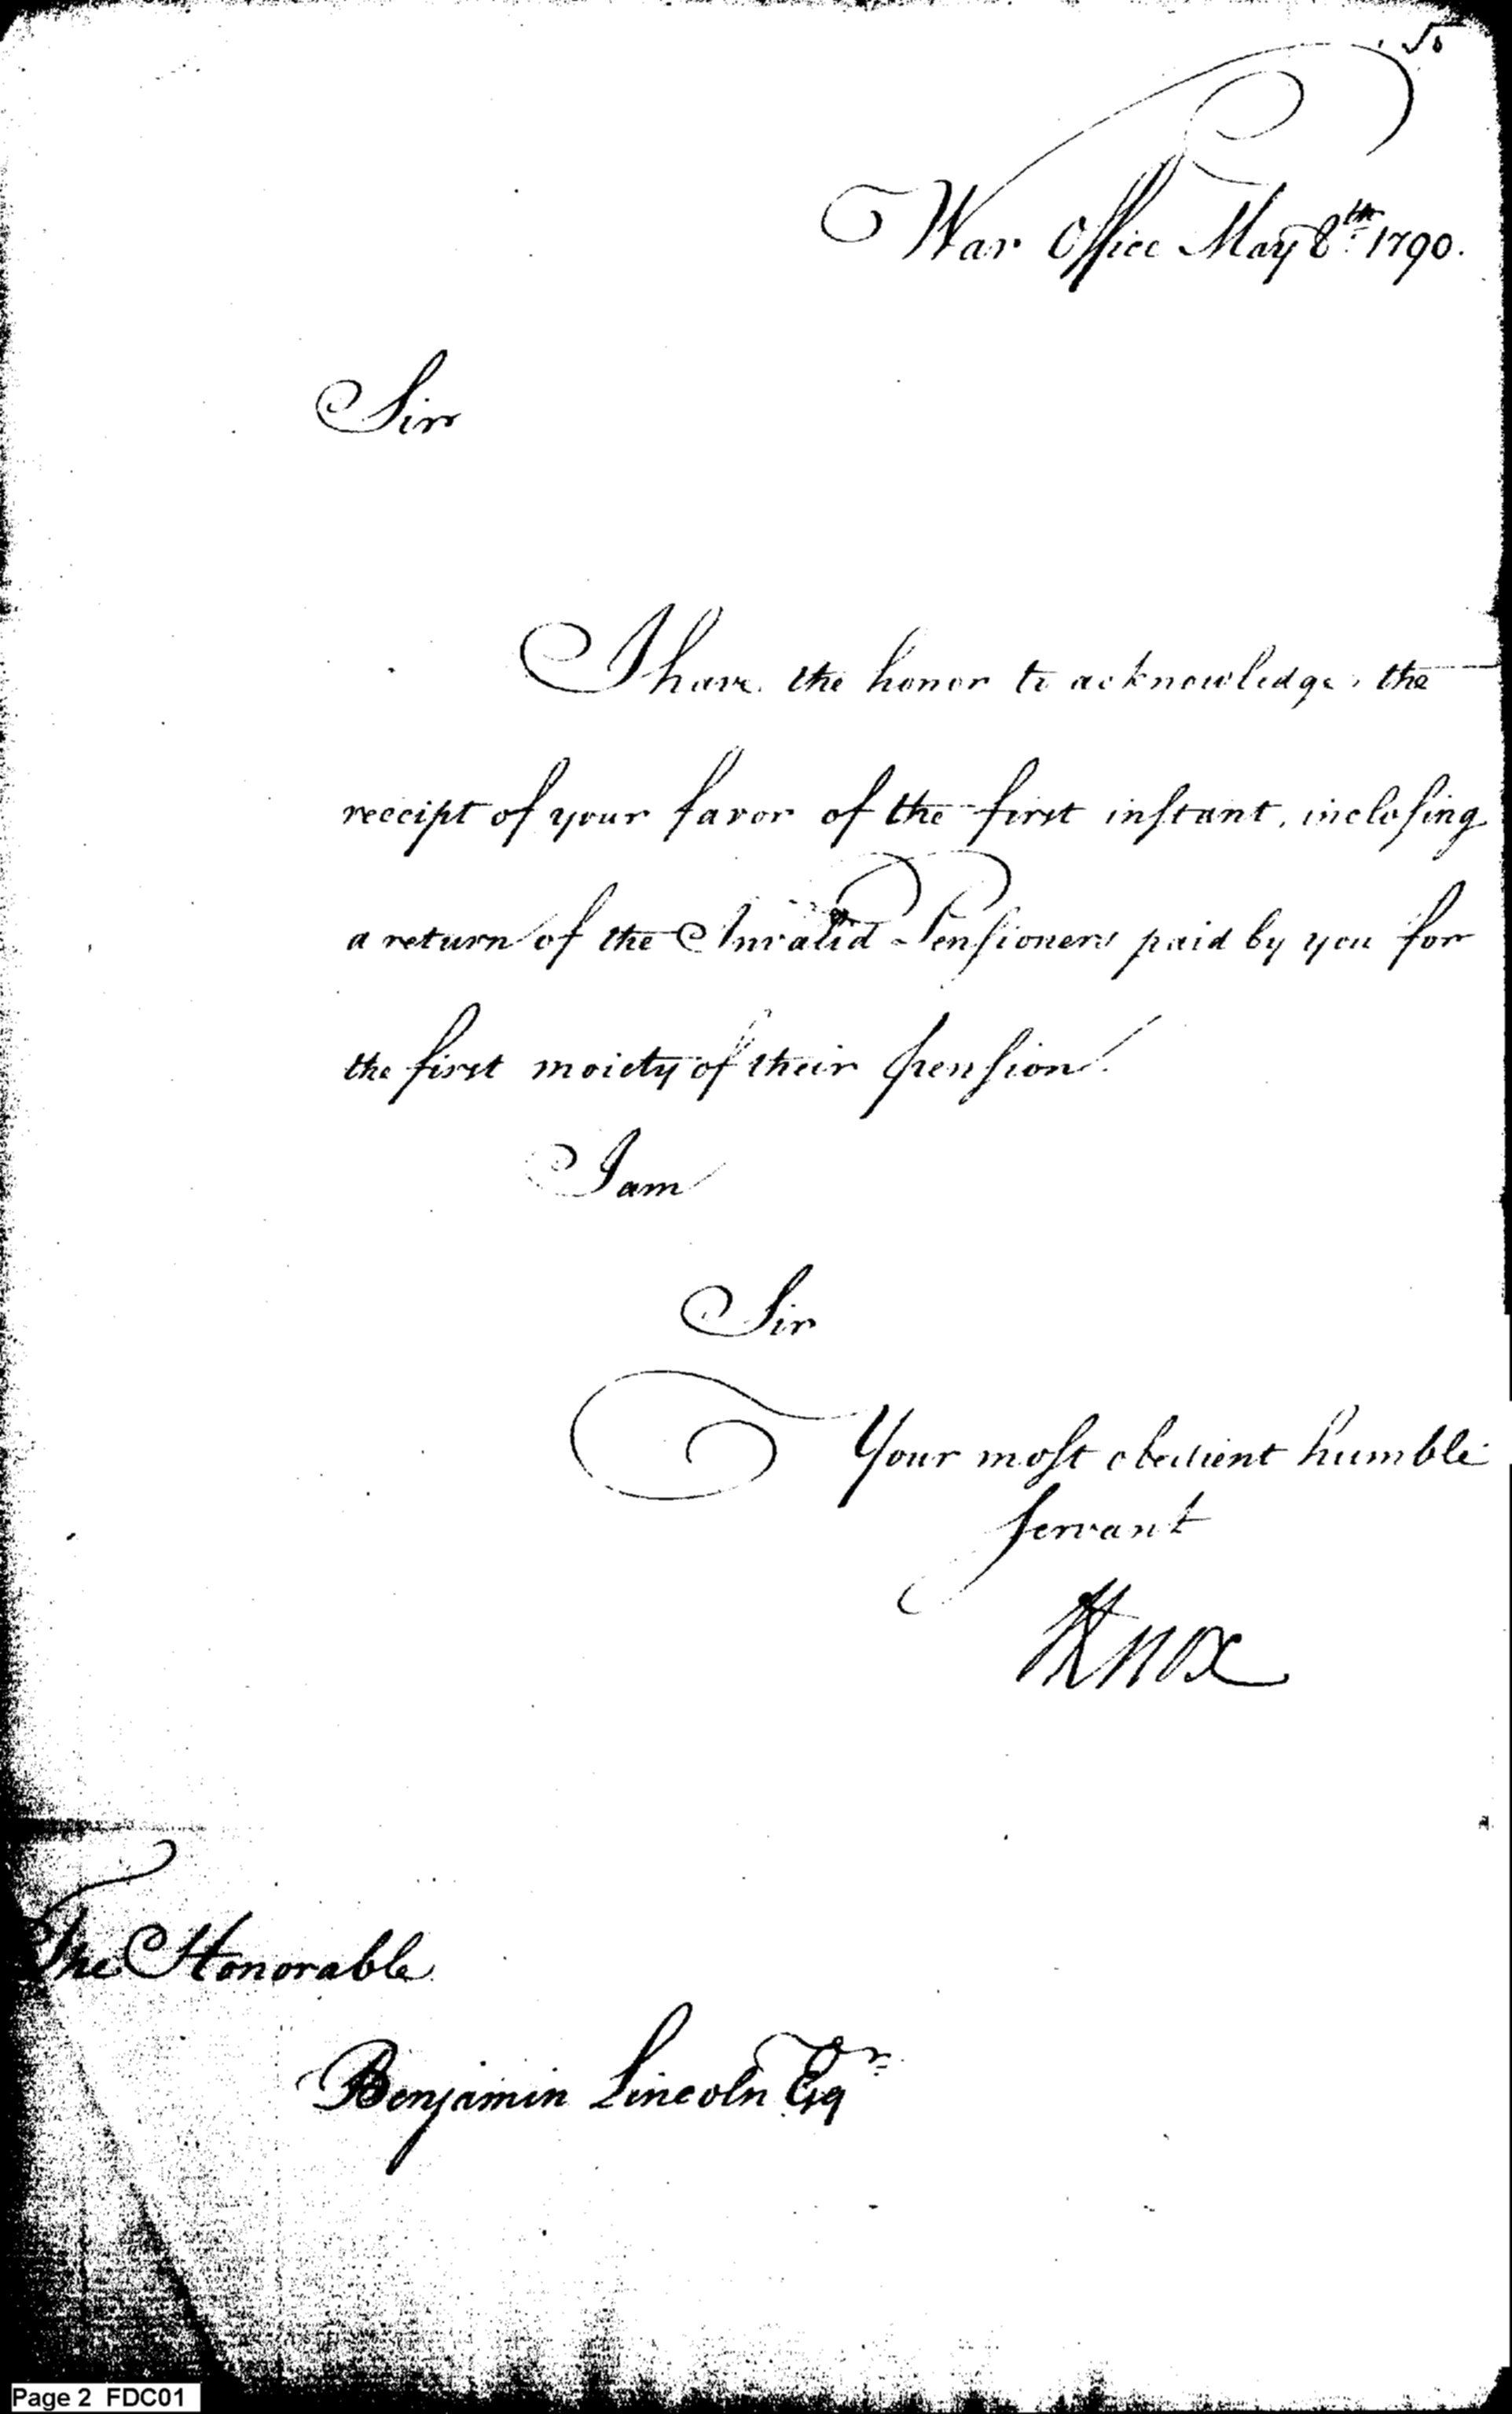 50
War Office May 8th 1790.
Sir
I have the honor to acknowledge the
receipt of your favor of the first instant, inclosing
a return of the Invalid Pensioners paid by you for
the first moiety of their pension.
I am
Sir
Your most obedient humble
servant
HKnox
The Honorable
Benjamin Lincoln Esqr
Page 2 FDC01